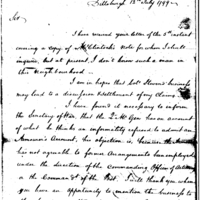 Pittsburgh 13th July 1799
Sir
I have received your letter of the 5th instant
covering a copy of McClintock's Note for when I shall
inquire, but at present, I don't know such a man in
this Neighbourhood
I am in hopes that Howard's business
may lead to a decisive settlement of my Claims
I have found it necessary to inform
the Secretary of War that the Q. M. Gen has on account
of what he thinks an informality refused to admit an
American's Amount, his objection is because the
has not agreeable to former Arrangements been employed
under the direction of the Commanding Officer of
or the Commandt of the Post. I will thank you when
you have an opportunity to mention the business to